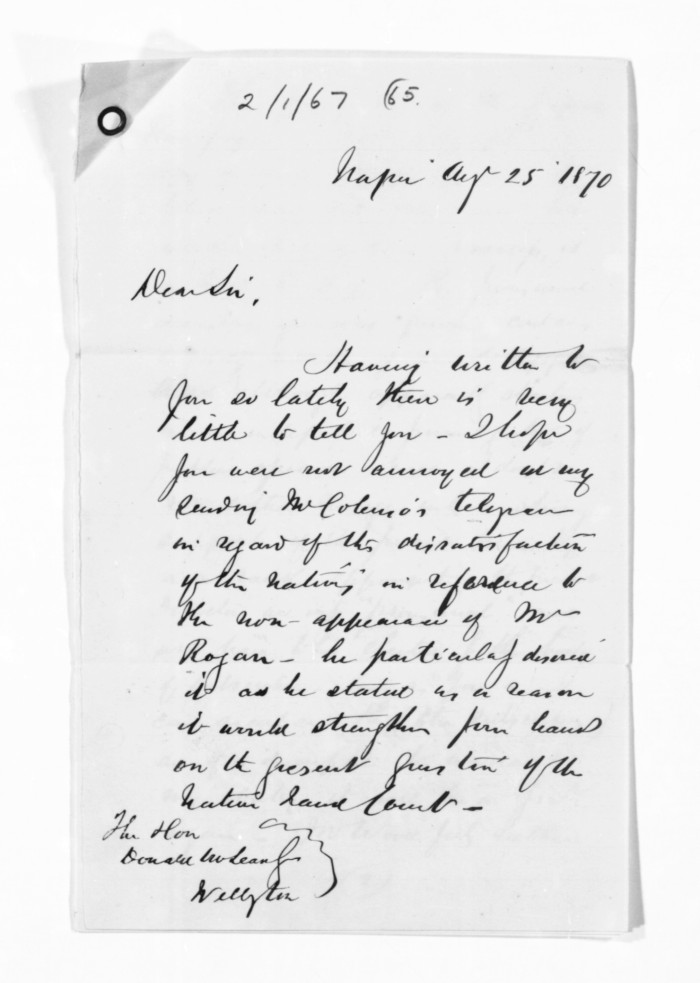 2/1/67 65.
Napier Augt 25 1870
Dear Sir,
Having written to
you so lately there is very
little to tell you - I hope
you were not annoyed at my
sending Mr Colenso's telegram
in regard of the dissatisfaction
of the natives in reference to
the non-appearance of Mr
Rogan - he particularly desired
it as he stated as a reason
it would strengthen your hands
on the present question of the
Native Land Court -
The Hon
Donald McLean
Wellington